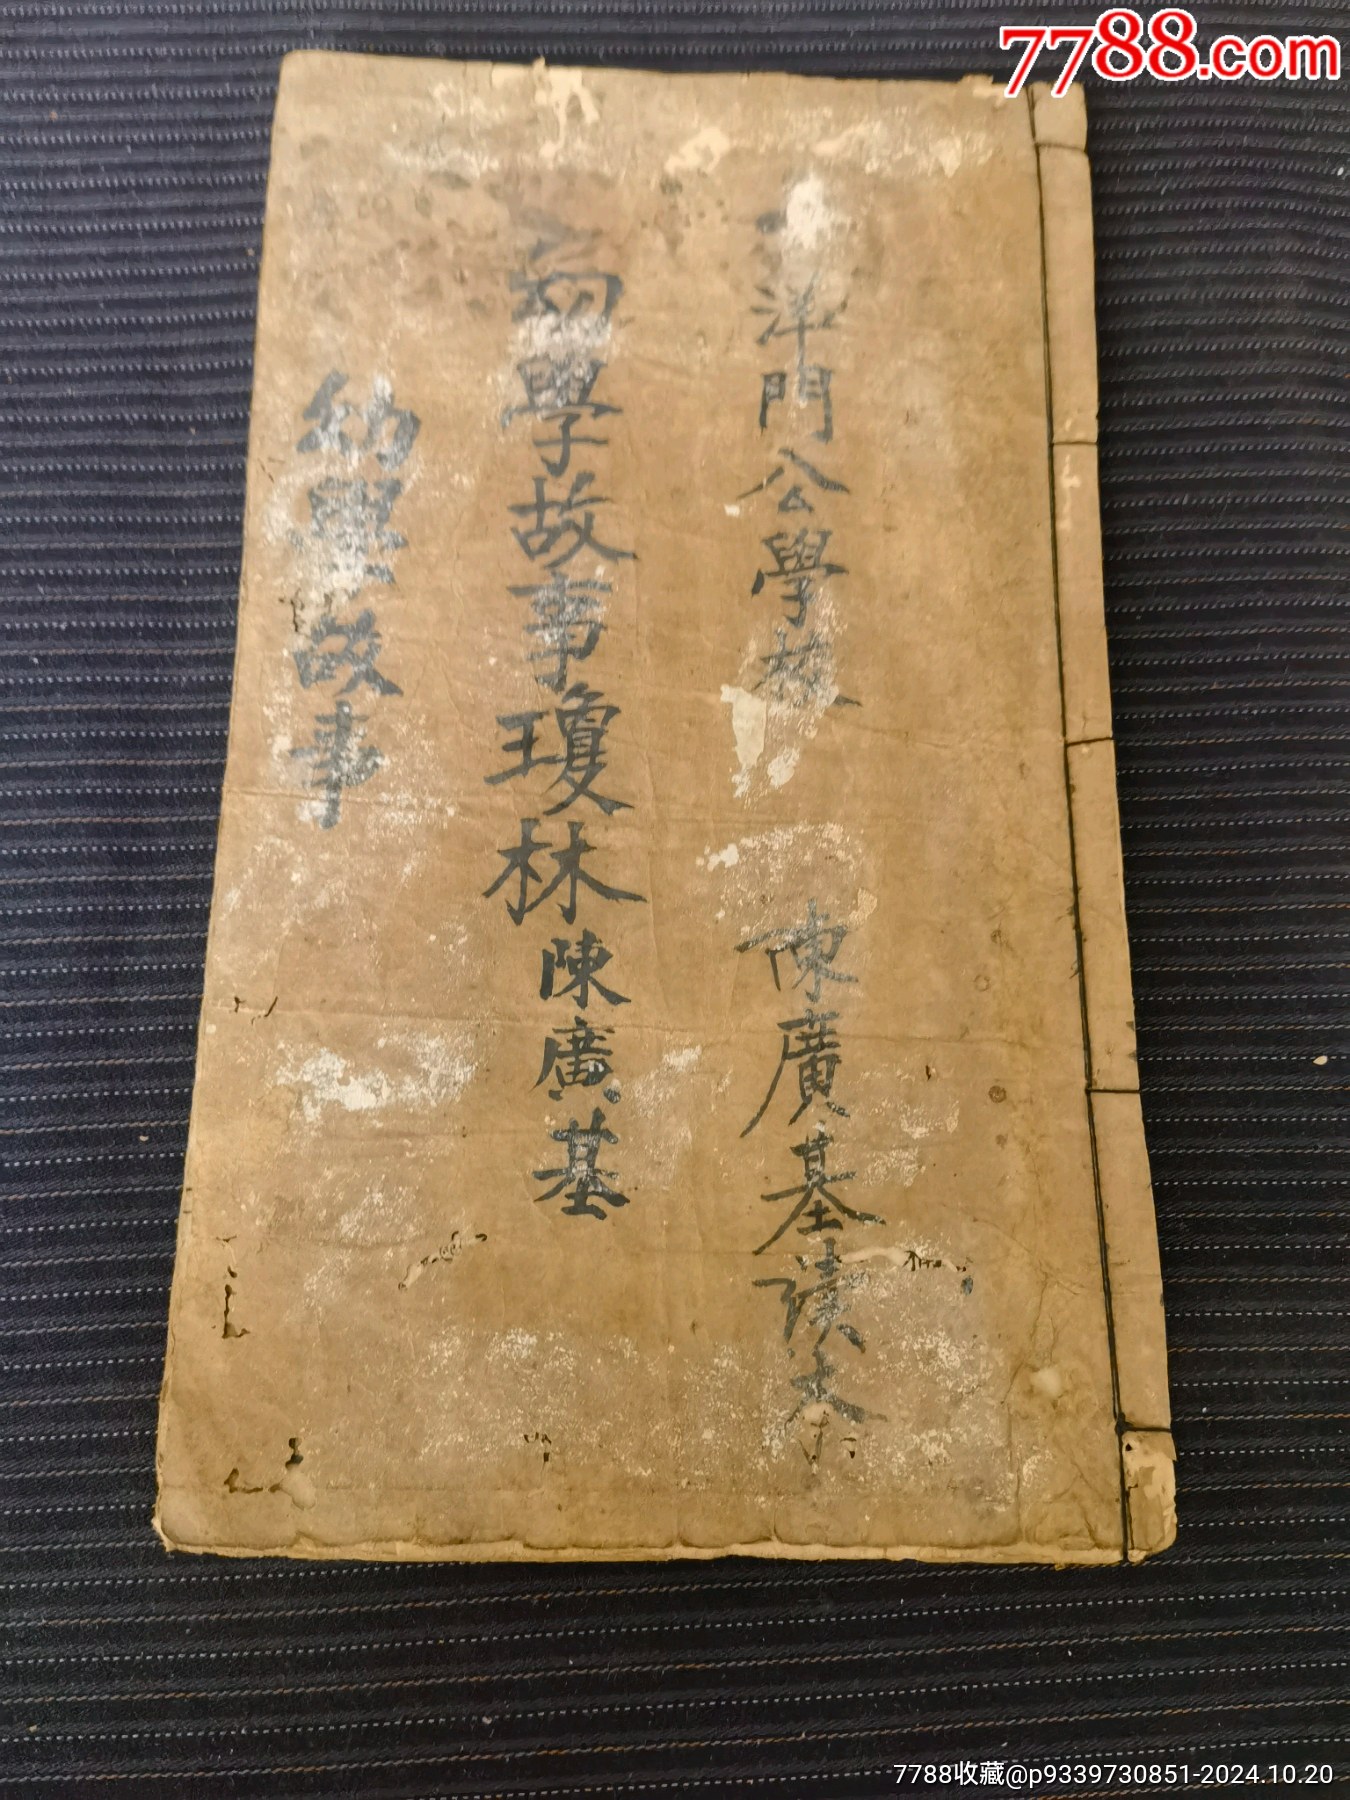 7788.com
洋門公學校 陳廣基讀本
幼學故事瓊林陳廣基
幼學故事
7788收藏@p9339730851-2024.10.20